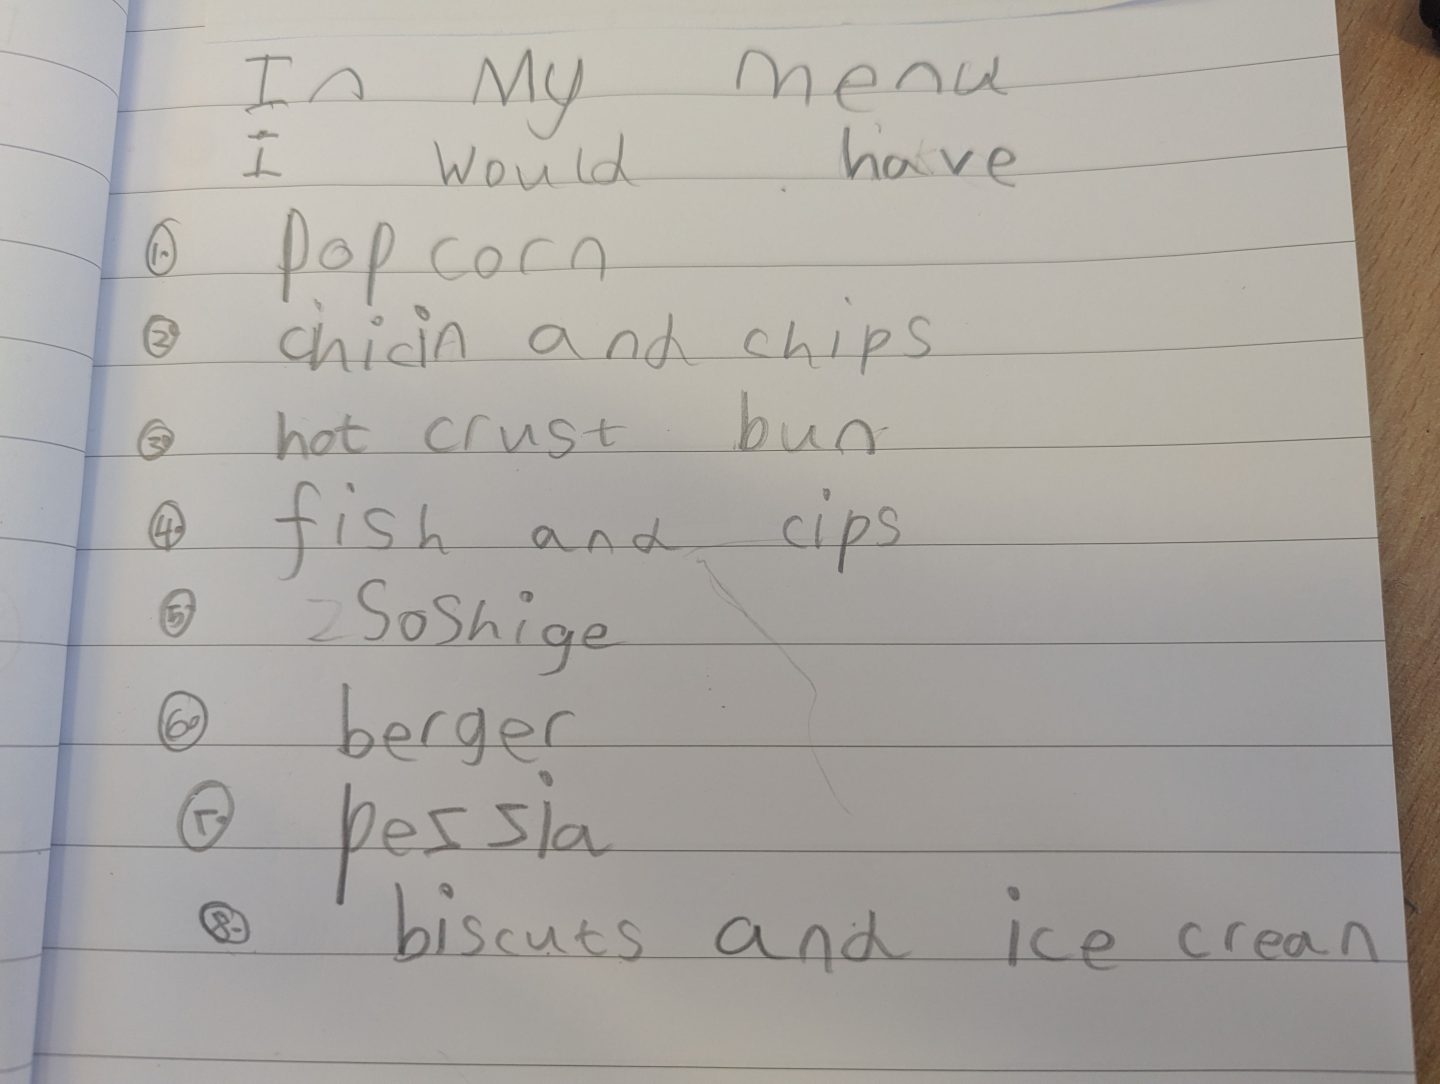 In My menu
I would have
1. popcorn
2. chicin and chips
3. hot crust bun
4. fish and cips
5. Soshige
6. berger
7. pessia
8. biscuts and ice crean